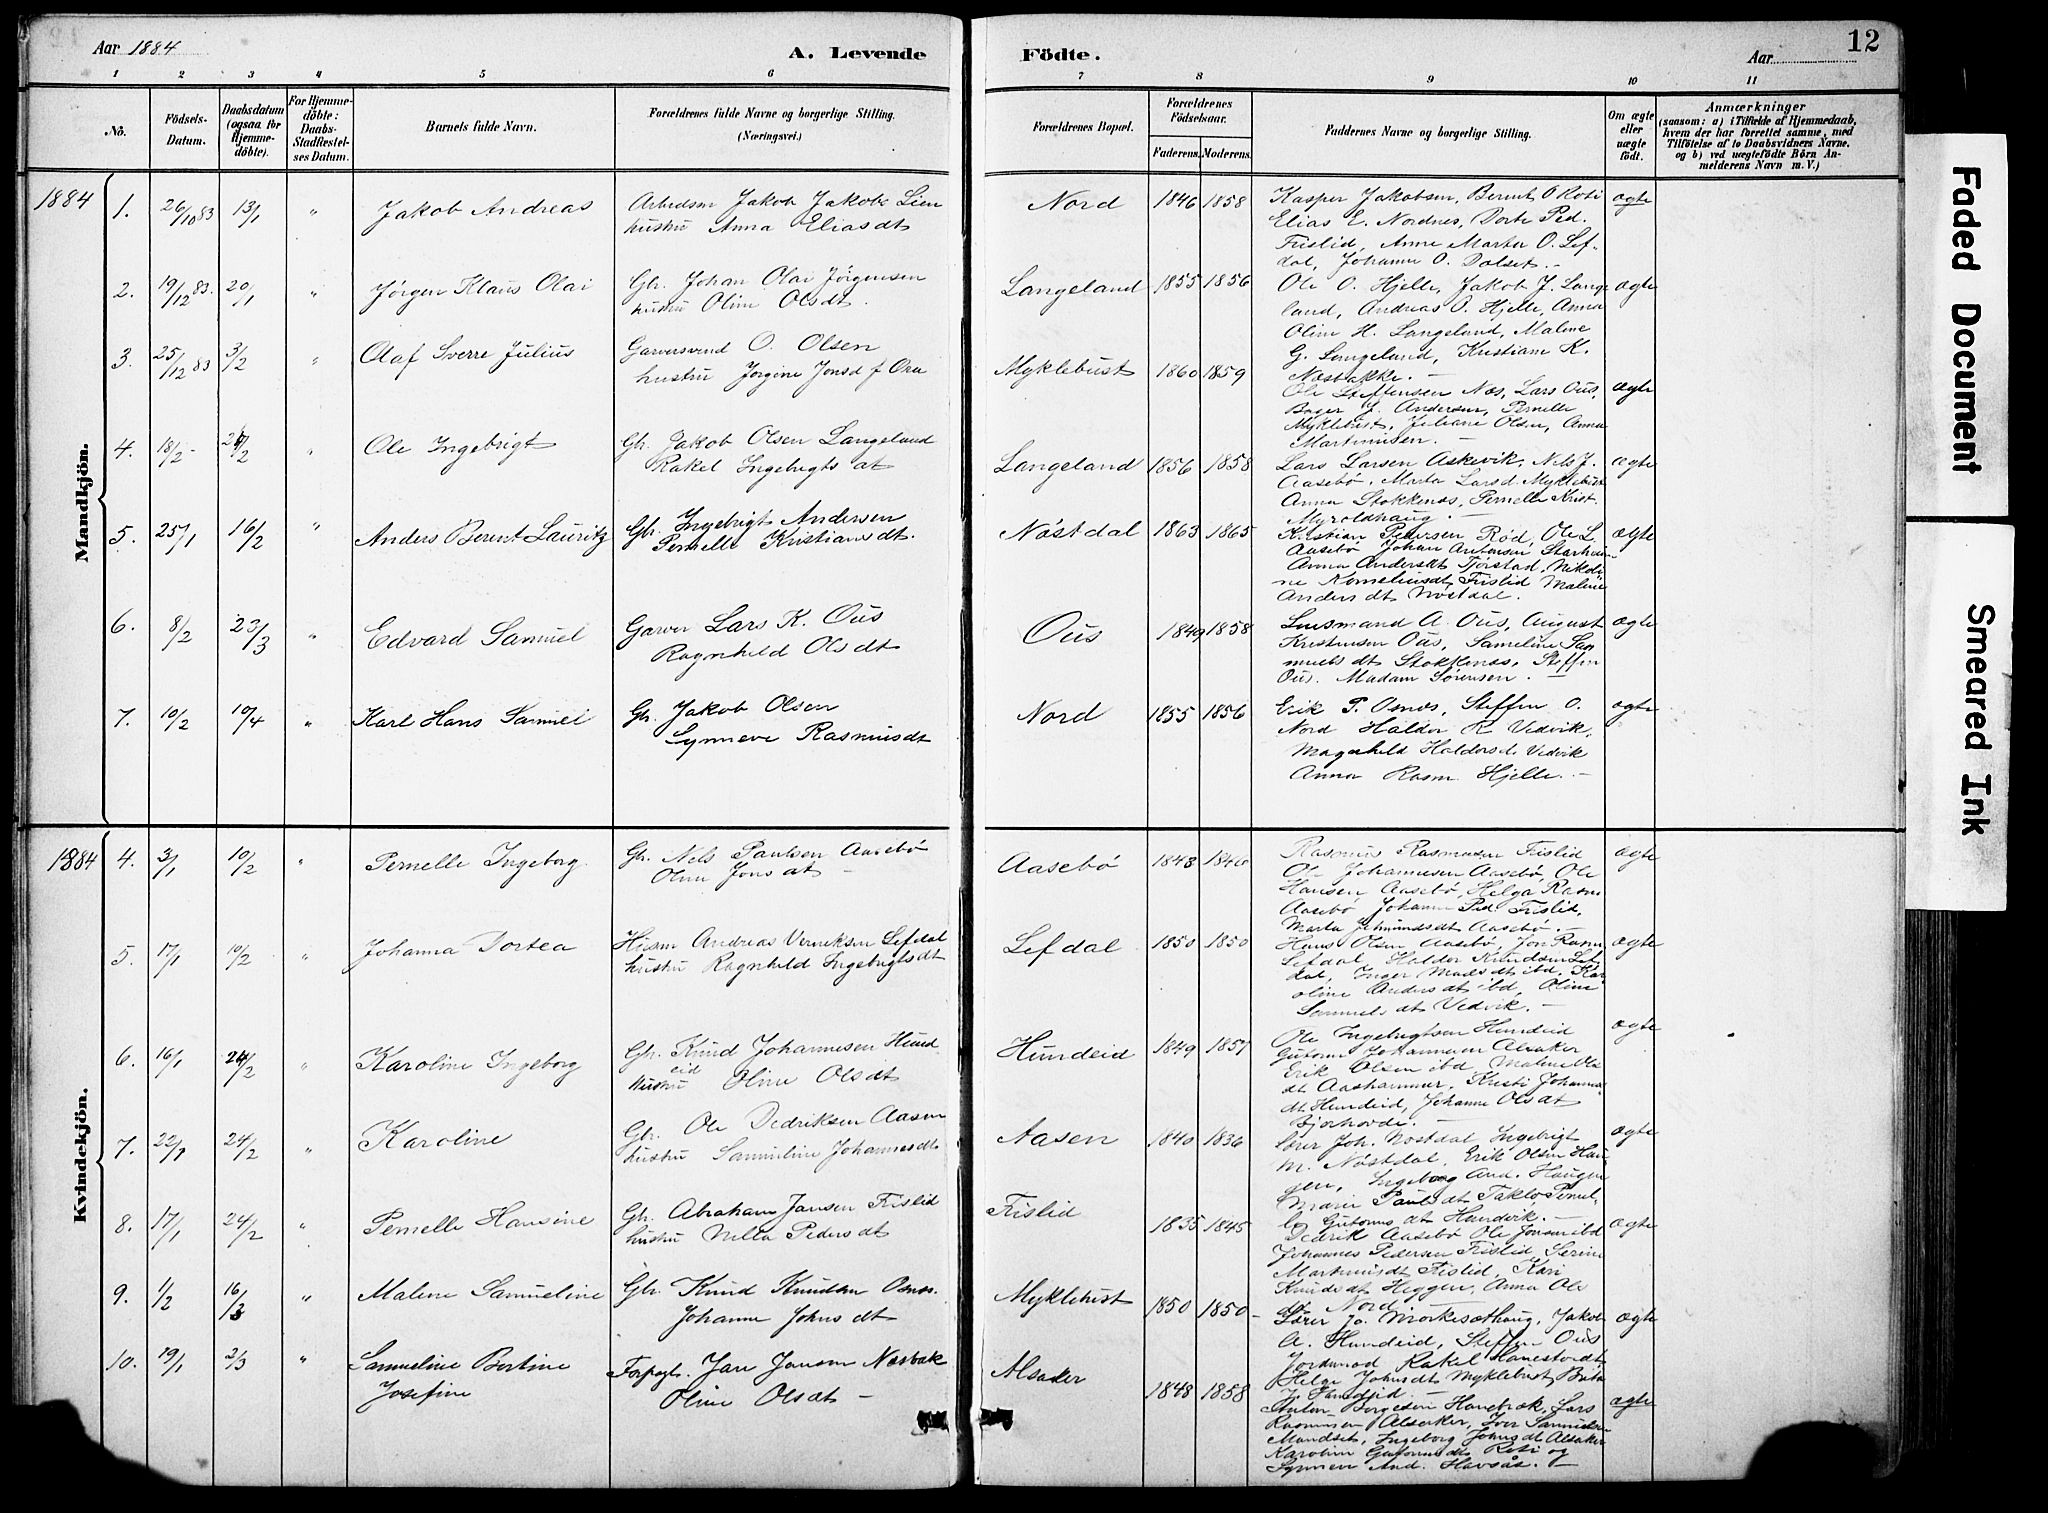 Aar 1884
A. Levende
Födte.
Aar
12
1 2 3 4 5 6 7 8 9 10 11
No.
Födsels-Datum.
Daabsdatum (ogsaa for Hjemme-döbte).
For Hjemme-döbte: Daabs-Stadfæstel-ses Datum.
Barnets fulde Navn.
Forældrenes fulde Navne og borgerlige Stilling. (Næringsvei.)
Forældrenes Bopæl.
Forældrenes Födselsaar.
Faderens. Moderens.
Faddernes Navne og borgerlige Stilling.
Om ægte eller uægte födt.
Anmærkninger
(saasom: a) i Tilfælde af Hjemmedaab,
hvem der har forrettet samme, med
Tilföielse af to Daabsvidners Navne.
og b) ved uægtefödte Börn An-
melderens Navn m. V.)
Mandkjön.
1884 1. 26/10 83 13/1 " Jakob Andreas Arbeidsm Jakob Jakobs Lien
hustru Anna Eliasdt
Nord 1846 1858 Kasper Jakobsen, Bernt O Roti ægte
Elias E. Nordnes, Dorte Ped.
Frislid, Anne Marta O. Lef-
dal, Johanne O. Dalset.
2. 19/12 83. 20/1 " Jörgen Klaus Olai Gbr. Johan Olai Jörgensen
hustru Oline Olsdt.
Langeland 1855 1856 Ole O. Hjelle, Jakob J. Lange ægte
land, Andreas O. Hjelle, Anna
Oline H. Langeland, Malene
G. Langeland, Kristiane K.
Næsbakke.
3. 25/12 83 3/2 " Olaf Sverre Julius Garversvend O. Olsen
hustru Jorgine Jonsd
Myklebust 1860 1859 Ole Steffensen Næs, Lars Ous, ægte
Bager J. Andersen, Pernelle
Myklebust, Juliane Olsen, Anna
Martinusen.
4. 18/2 /2 " Ole Ingebrigt Gbr. Jakob Olsen Langeland
Rakel Ingebrigts dt
Langeland 1856 1858 Lars Larsen Askevik, Nils J. ægte
Aasebø, Marta Larsd. Myklebust
Anna Stokkenæs, Pernelle Krist.
Myroldhaug.
5. 25/1 16/2 " Anders Berent Lauritz Gbr. Ingebrigt Andersen
Pernelle Kristiansdt.
Nöstdal 1863 1865 Kristian Pedersen Röd, Ole L. ægte
Aasebø Johan Antonsen Starheim
Anna Andersdt Tjorstad, Nikoli-
ne Korneliusdt Frislid Malene
Anders dt Nöstdal.
6. 8/2 23/3 " Edvard Samuel Garver Lars K. Ous
Ragnhild Olsdt
Ous 1849 1858 A. Ous, August ægte
Kristensen Ous, Sameline Sam
muels dt Stokkenæs, Steffen
Ous. Madam Sörensen.
7. 10/2 10/4 " Karl Hans Samuel Gbr. Jakob Olsen
Synneve Rasmusdt
Nord 1855 1856 Erik P. Osnæs, Steffen O. ægte
Nord Haldor R Vedvik,
Magnhild Haldorsd. Vedvik
Anna Rasm. Hjelle.
Kvindekjön.
1884 4. 3/1 10/2 " Pernelle Ingeborg Gbr. Nels Paulsen Aasebø
Oline Jonsdt
Aasebø 1843 1846 Rasmus Rasmusen Frislid ægte
Ole Johannesen Aasebø, Ole
Hansen Aasebø, Helga Rasm
Aasebø Johanne Ped. Frislid,
Marta dt Aasebø.
5. 17/1 10/2 " Johanna Dortea Husm Andreas Lefdal
hustru Ragnhild Ingebrigtsdt
Lefdal 1850 1850 Hans Olsen Aasebø, Jon Rasm ægte
Lefdal, Haldor Knudsen Lef
dal, Inger Mads dt ibd, Kar
oline Anders dt ibd, Oline
Samuels dt Vedvik.
6. 16/1 24/2 " Karoline Ingeborg Gbr. Knud Johannesen Hund-
eid
hustru Oline Olsdt
Hundeid 1849 1857 Ole Ingebrigtsen Hundeid ægte
Gutorm Johannesen Alsaker
Erik Olsen ibd, Malene Ols
dt Aashammer, Kristi Johannes
dt Hundeid, Johanne Olsdt
Bjorhovde.
7. 22/1 24/2 " Karoline Gbr. Ole Dedriksen Aasen
hustru Samueline Johannesdt
Aasen 1840 1836 Lærer Joh. Nostdal Ingebrigt ægte
M. Nöstdal, Erik Olsen Hau-
gen, Ingeborg And. Haugen
Marie Pauls dt Taklo Pernel-
le Gutorms dt Hundvik.
8. 17/1 24/2 " Pernelle Hansine Gbr. Abraham Jansen Frislid
hustru Nilla Pedersdt
Frislid 1835 1845 Dedrik Aasebø Ole Jonsen ibd ægte
Johannes Pedersen Frislid, Serine
Martinusdt Frislid, Kari
Knudsdt Heggen, Anna Ols
dt Nord
9. 1/2 16/3 " Malene Samueline Gbr. Knud Knudsen Osnæs.
Johanne Johnsdt
Myklebust 1850 1850 Lærer Jo. Morkesæthaug, Jakob ægte
A. Hundeid, Steffen Ous
Jordemod Rakel
Helge Johnsdt Myklebust, Brita
J. Sandeid.
10. 19/1 2/3 " Samueline Bertine
Josefine
Forpagt. Jan Jansen Næsbak
Oline Olsdt
Alsaker 1848 1858 Anton Börgesen , Lars ægte
Rasmusen Alsaker, Iver Samuelsen
Mandset, Ingeborg Johnsdt Alsaker
Karoline Gutormsdt Roti og
Synneve And. Havsås.
Faded Document
Smeared Ink